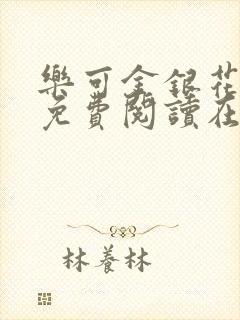 樂可金銀花
免費閱讀在
林養林